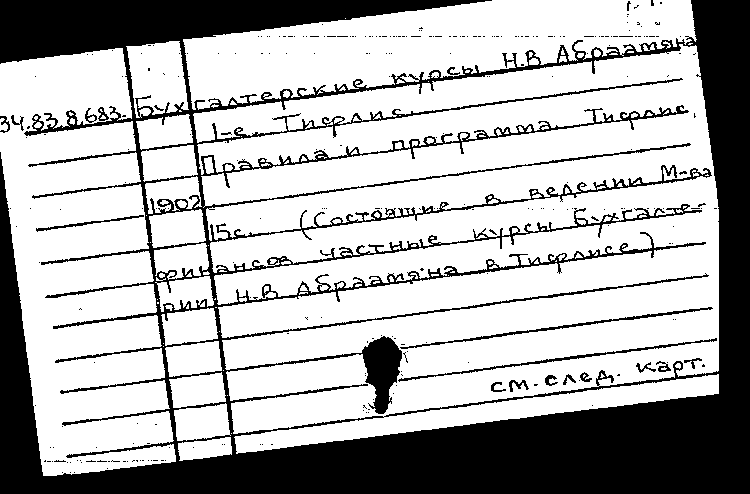 34.83.8.683. Бухгалтерские курсы Н.В Абраамяна
1-е. Тифлис.
Правила и программа. Тифлис,
1902.
15с. (Состоящие в ведении М-ва
финансов частные курсы бухгалте-
рии Н.В Абраамяна в Тифлисе)
см. след. карт.